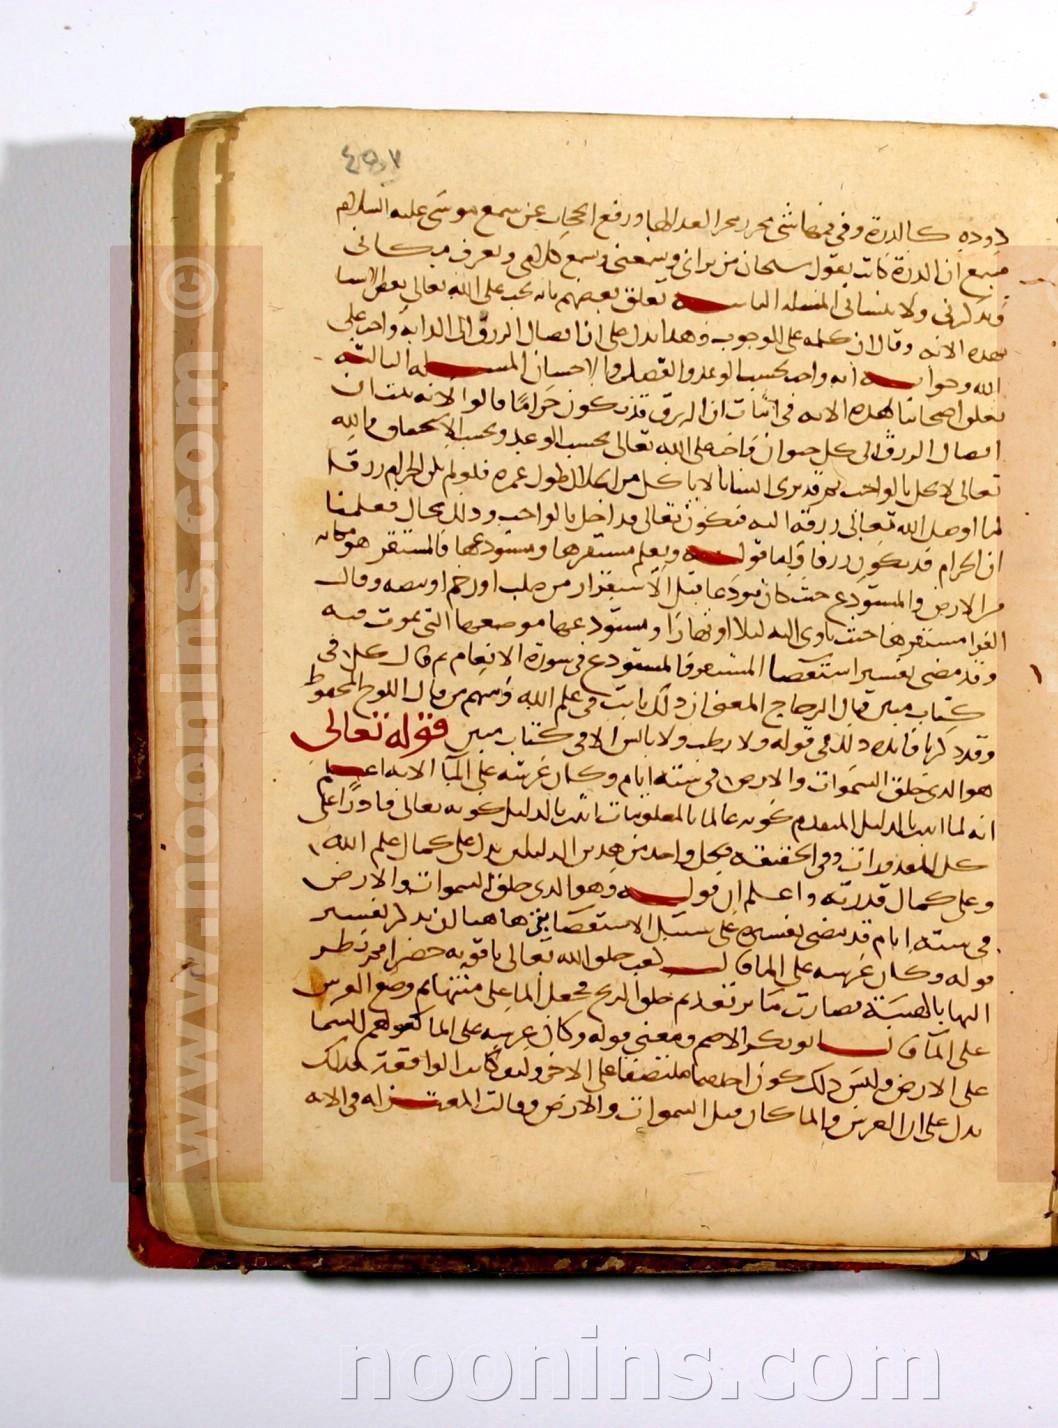 ٤٥٧
دوده كالذرة وفي فمها شي يجري مجرى الغذا لها ورفع الحجاب عن سمع موسى عليه السلام
فسمع ان الذرة كانت تقول سبحان من يراني ويسمع كلامي ويعرف مكاني
ويذكرني ولا ينساني المسئلة الثانية تعلق بعضهم بانه يجب على الله تعالى بعض الاشيا
بهذه الاية وقال ان كلمة على للوجوب وهذا يدل على ان ايصال الرزق الى الدابة واجب على
الله وجوابه انه واجب بحسب الوعد والفضل والاحسان المسئلة الثالثة
تعلق اصحابنا بهذه الاية في اثبات ان الرزق قد يكون حراما قالوا لانه ثبت ان
ايصال الرزق الى كل حيوان واجب على الله تعالى بحسب الوعد وبحسب الاستحقاق والله
تعالى لا يخل بالواجب ثم قد نرى انسانا لا ياكل من الحلال طول عمره فلو لم يكن الحرام رزقا
لما اوصل الله تعالى رزقه اليه فيكون تعالى قد اخل بالواجب وذلك محال فعلمنا
ان الحرام قد يكون رزقا واما قوله ويعلم مستقرها ومستودعها فالمستقر هو مكانه
من الارض والمستودع حيث كان مودعا قبل الاستقرار من صلب او رحم او بيضه وقال
الفرا مستقرها حيث تاوي اليه ليلا او نهارا ومستودعها موضعها التي تموت فيه
وقد مضى تفسير استقصا المستقر والمستودع في سورة الانعام ثم قال كل في
كتاب مبين قال الزجاج المعنى ان ذلك ثابت في علم الله ومنهم من قال اللوح المحفوظ
وقد ذكرنا فائدة ذلك في قوله ولا رطب ولا يابس الا في كتاب مبين قوله تعالى
هو الذي خلق السموات والارض في ستة ايام وكان عرشه على المآ الاية اعلم
انه لما اثبت بالدليل المتقدم كونه عالما بالمعلومات اثبت بالدليل كونه تعالى قادرا على
كل المقدورات وفي الحقيقة فكل واحد من هذين الدليلين يدل على كمال علم الله
وعلى كمال قدرته واعلم ان قوله وهو الذي خلق السموات والارض
في ستة ايام قد مضى تفسيره على سبيل الاستقصا بقي هاهنا ان نذكر تفسير
قوله وكان عرشه على الما قال كعب خلق الله تعالى ياقوته خضرا ثم نظر
اليها بالهيبة فصارت ما يرتعد ثم خلق الريح فجعل الما على متنها ثم وضع العرش
على المآ قال ابو بكر الاصم ومعنى قوله وكان عرشه على الما كقولهم السما
على الارض وليس ذلك كون احدهما ملتصقا على الاخر وليف كانت الواقعة فذلك
يدل على ان العرش والما كان قبل السموات والارض وقالت المعتزله في الاية
www.noonins.com ©
noonins.com